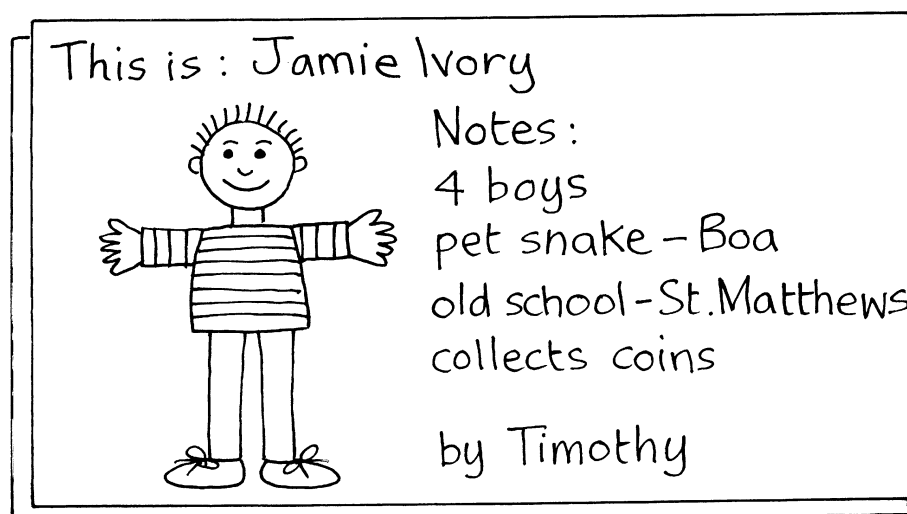 This is : Jamie Ivory
Notes :
4 boys
pet snake – Boa
old school – St. Matthews
collects coins
by Timothy